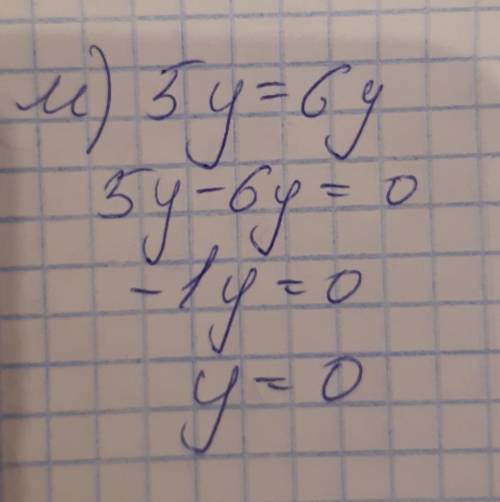 м) 5y = 6y
5y - 6y = 0
- 1y = 0
y = 0